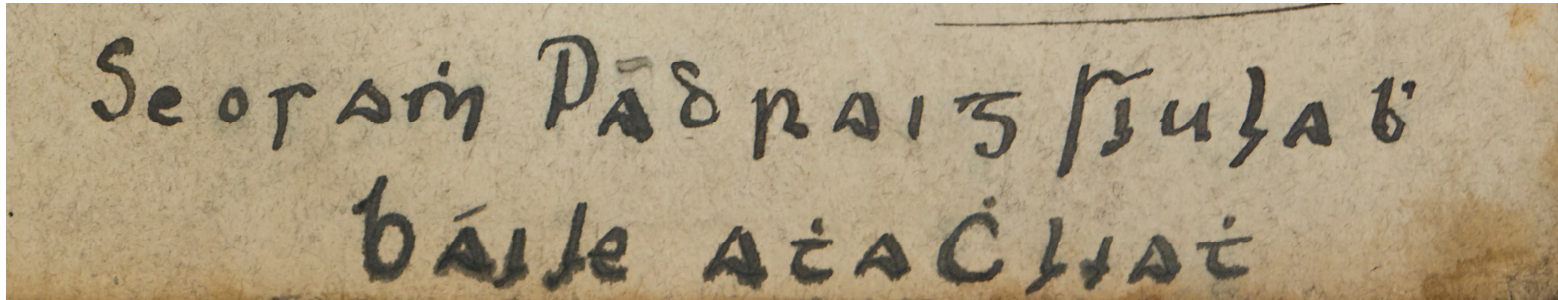 Seosaṁ Pádraig Siulaḃ
Báile aṫa Ċliaṫ